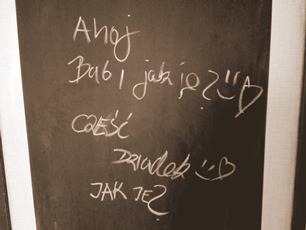 Ahoj
Babi jak je? :) ♡
CZEŚĆ
Dziadek :) ♡
JAK JE?